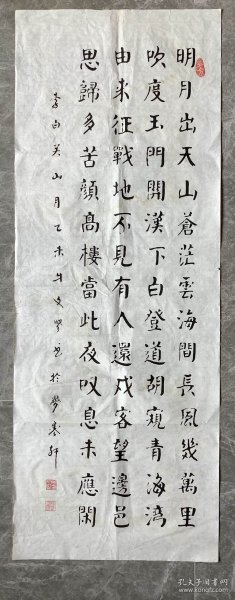 明月出天山蒼茫雲海間長風幾萬里
吹度玉門開漢下白登道胡窺青海湾
由来征戰地不見有人還戍客望邊邑
思歸多苦顏高樓當此夜叹息未應閑
李白关山月乙未年
孔夫子旧书网